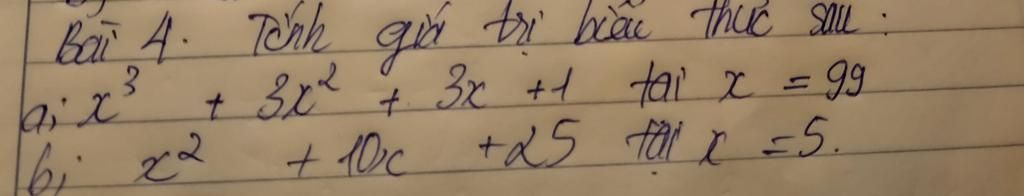 Bài 4. Tính giá trị biểu thức sau:
a; x³ + 3x² + 3x +1 tại x = 99
b; x² + 10x +25 tại x = 5.